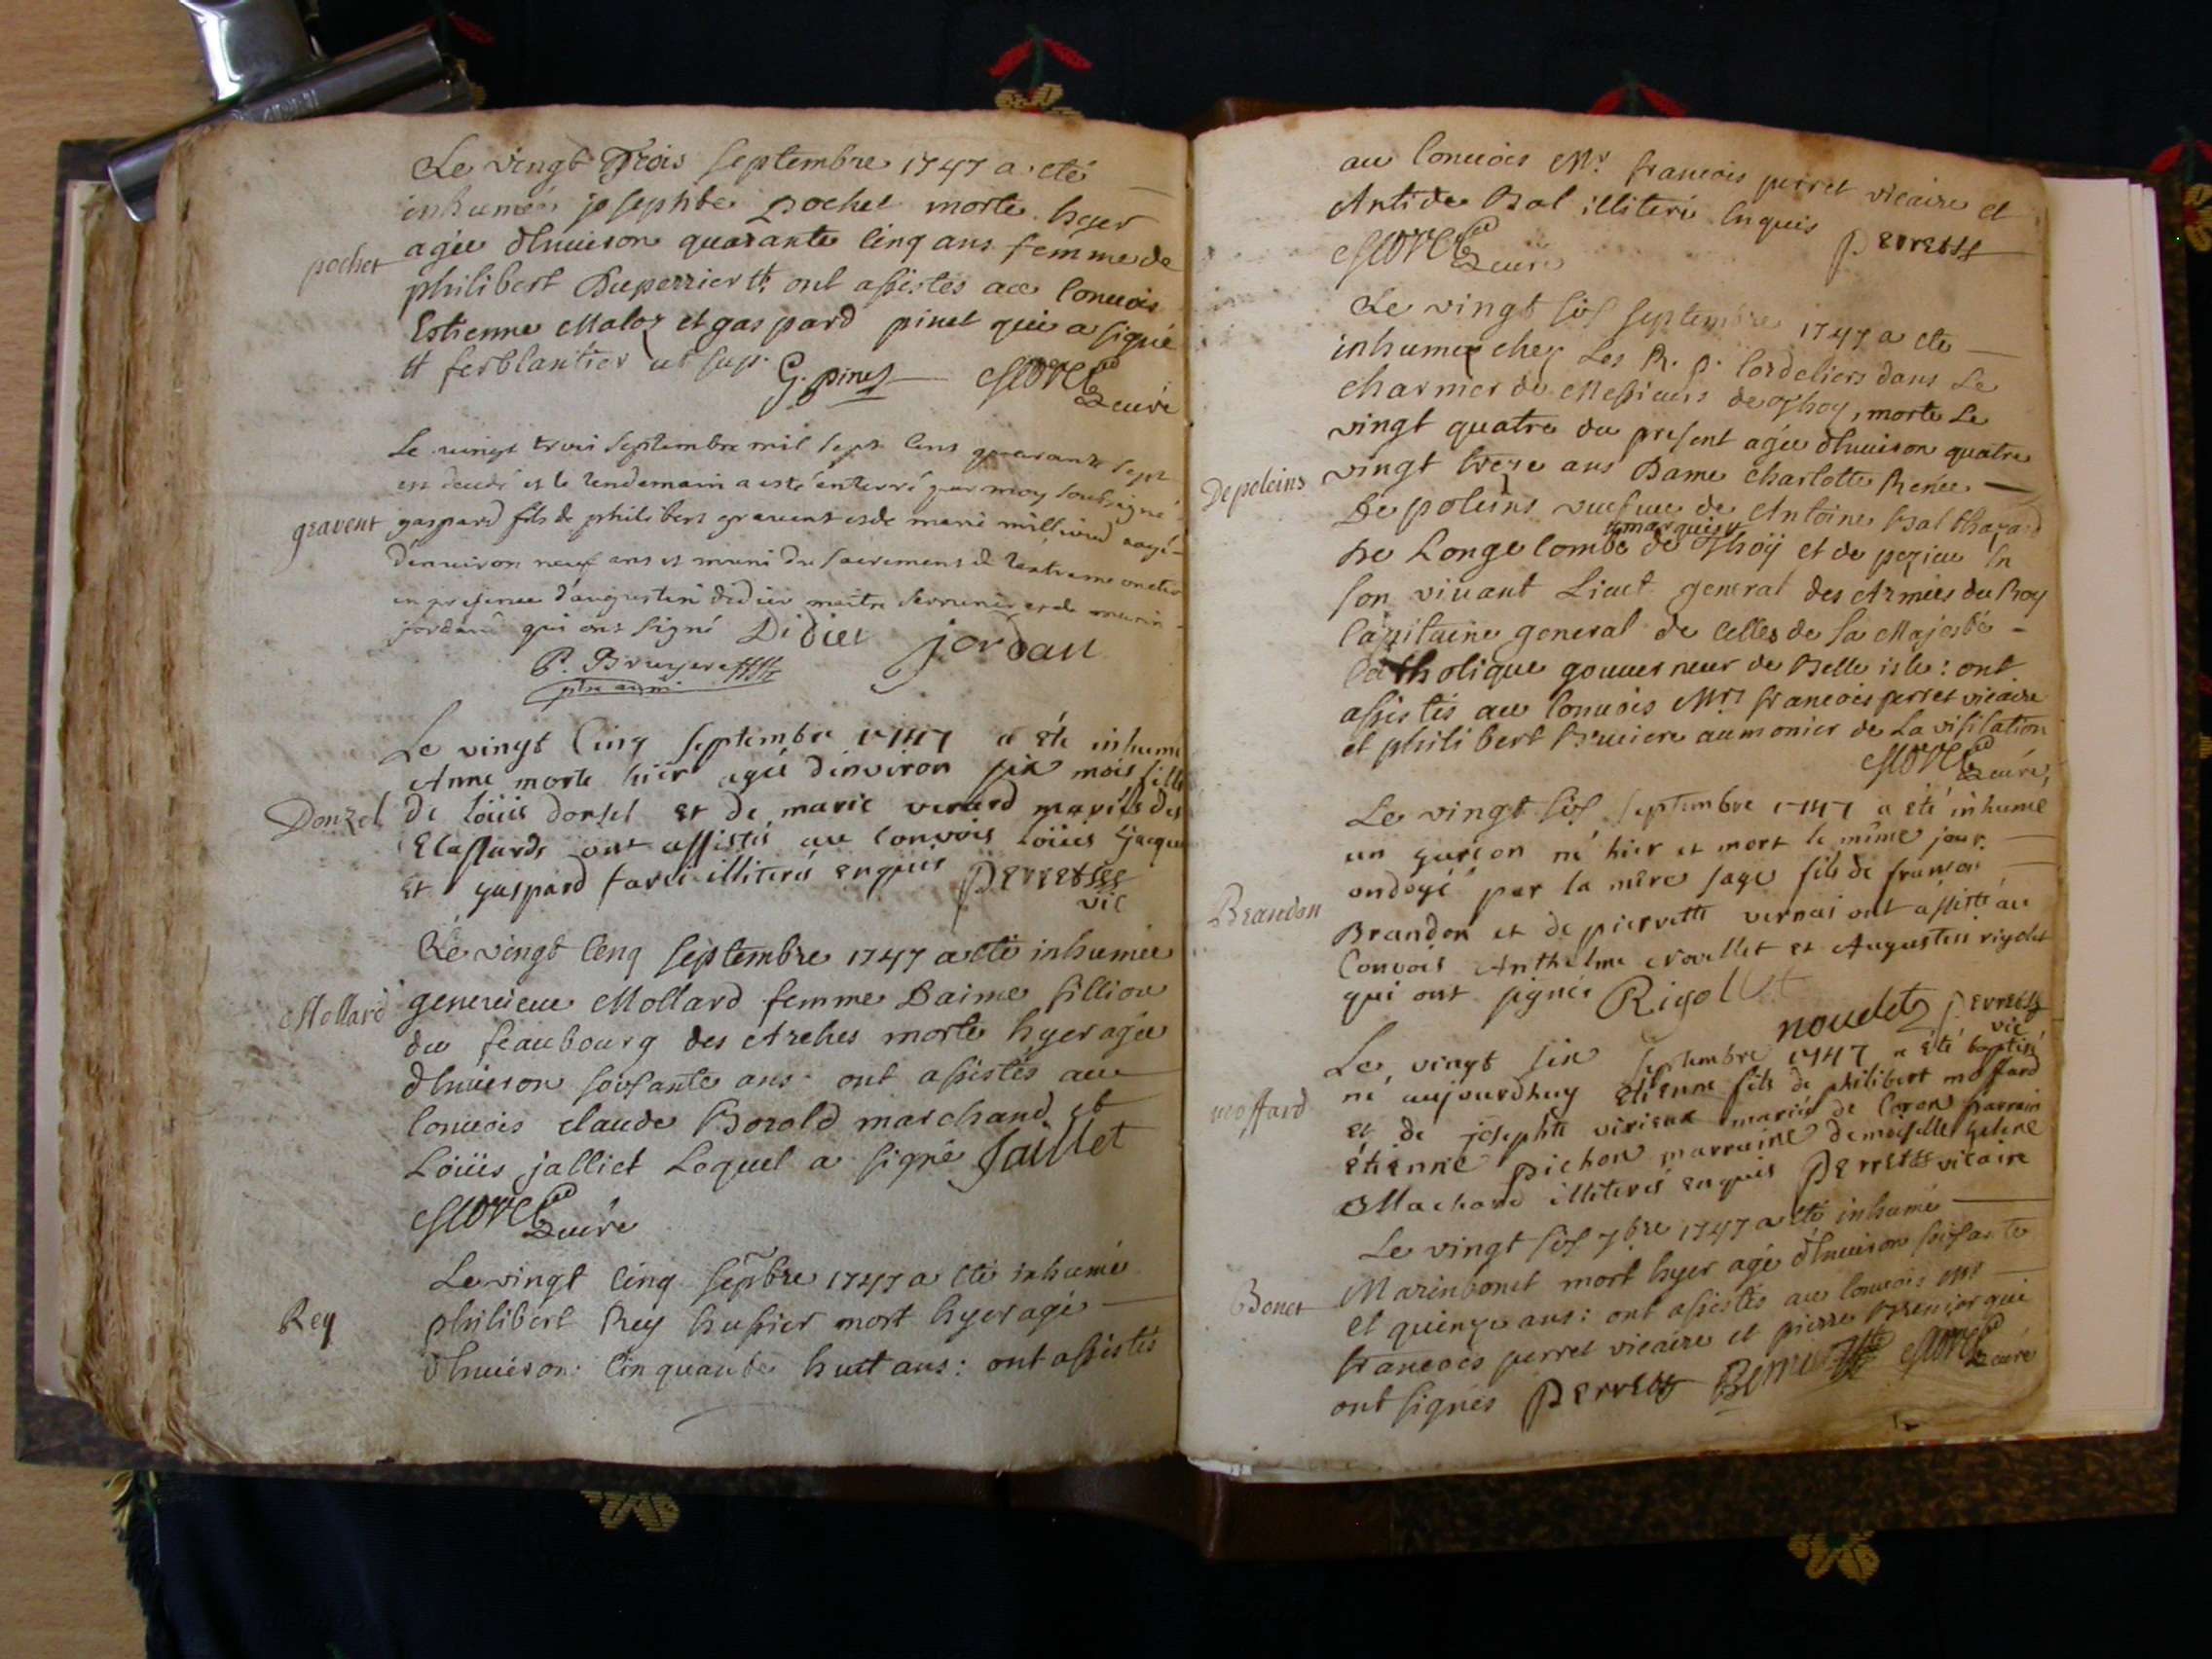 Le vingt Trois septembre 1747 a eté
inhumée josephte pochet morte hyer
pochet agée d'Enuiron quarante Cinq ans femme de
philibert Duperrier # ont assistés au Conuois
Estienne Maloz et gaspard pinet qui a signé
# ferblantier ut sup. G. pinet Morel Curé
Le vingt trois septembre mil sept cens quarante sept
est decedé et le lendemain a esté enterré par moy soubsigné
gravent gaspard fils de philibert gravent et de marie aagé
d'enuiron neuf ans et muni du sacrement de l'extreme onction
en presence d'augustin didier maitre serrurier et de
jordan qui ont signé Didier jordan
P. Bruyere
Le vingt Cinq septembre 1747 a été inhumé
Anne morte hier agée d'environ six mois fille
Donzel de Loüis donsel et de marie verard mariés des
ont assistés au Convois Loüis jacque
et gaspard favre illiterés enquis Perret
vic
Le vingt Cinq septembre 1747 a eté inhumée
Mollard genevieue Mollard femme Daime fillion
du feaubourg des Arches morte hyer agée
d'Enuiron soisante ans ont assistés au
Conuois claude Borold marchand et
Loüis jalliet Lequel a signé Jaillet
Morel Curé
Le vingt Cinq sepbre 1747 a eté inhumé
Rey philibert Rey hussier mort hyer agé
d'Enuiron Cinquante huit ans: ont assistés
au Conuois Mr. francois perret vicaire et
Antide Bal illiteré Enquis
Morel Curé Perret
Le vingt sis septembre 1747 a eté
inhumée chez Les R. P. Cordeliers dans Le
charnier de Messieurs de Thoy, morte Le
vingt quatre du present agée d'Enuiron quatre
Depoleins vingt treze ans Dame charlotte Renée
De poleins vuefue de Antoine Balthazard
marquis
De Longecombe de Thoÿ et de pezieu En
son viuant Lieut general des Armées du Roy
Capitaine general de Celles de sa Majesté
Catholique gouuerneur de Belle isle: ont
assistés au Conuois Mrs francois perret vicaire
et philibert Bruiere aumonier de La visitation
Morel Curé,
Le vingt sis septembre 1747 a été inhumé
un garcon né hier et mort le même jour
ondoyé par la mere sage fils de francois
Brandon
Brandon et de pierrette vernai ont assisté au
Convois Anthelme nouellet et Augustin rigolet
qui ont signés Rigollet
nouelet Perret
vic
Le vingt six septembre 1747 a été baptisé
né aujourdhuy etienne fils de philibert moffard
moffard et de josephte virieux mariés de Ceron parrain
etienne pichon marraine demoiselle helene
Machard illiterés enquis Perret vicaire
Le vingt sis 7bre 1747 a eté inhumé
Bonet Marin bonet mort hyer agé d'Enuiron soisante
et quinze ans: ont assistés au Conuois Mr
francois perret vicaire et pierre Brenier qui
ont signés Perret Morel Curé